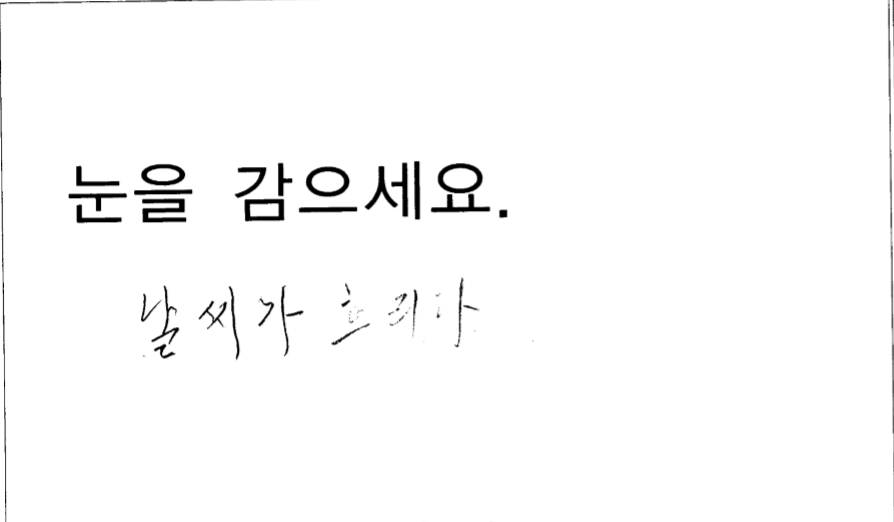 눈을 감으세요.
날씨가 흐리다